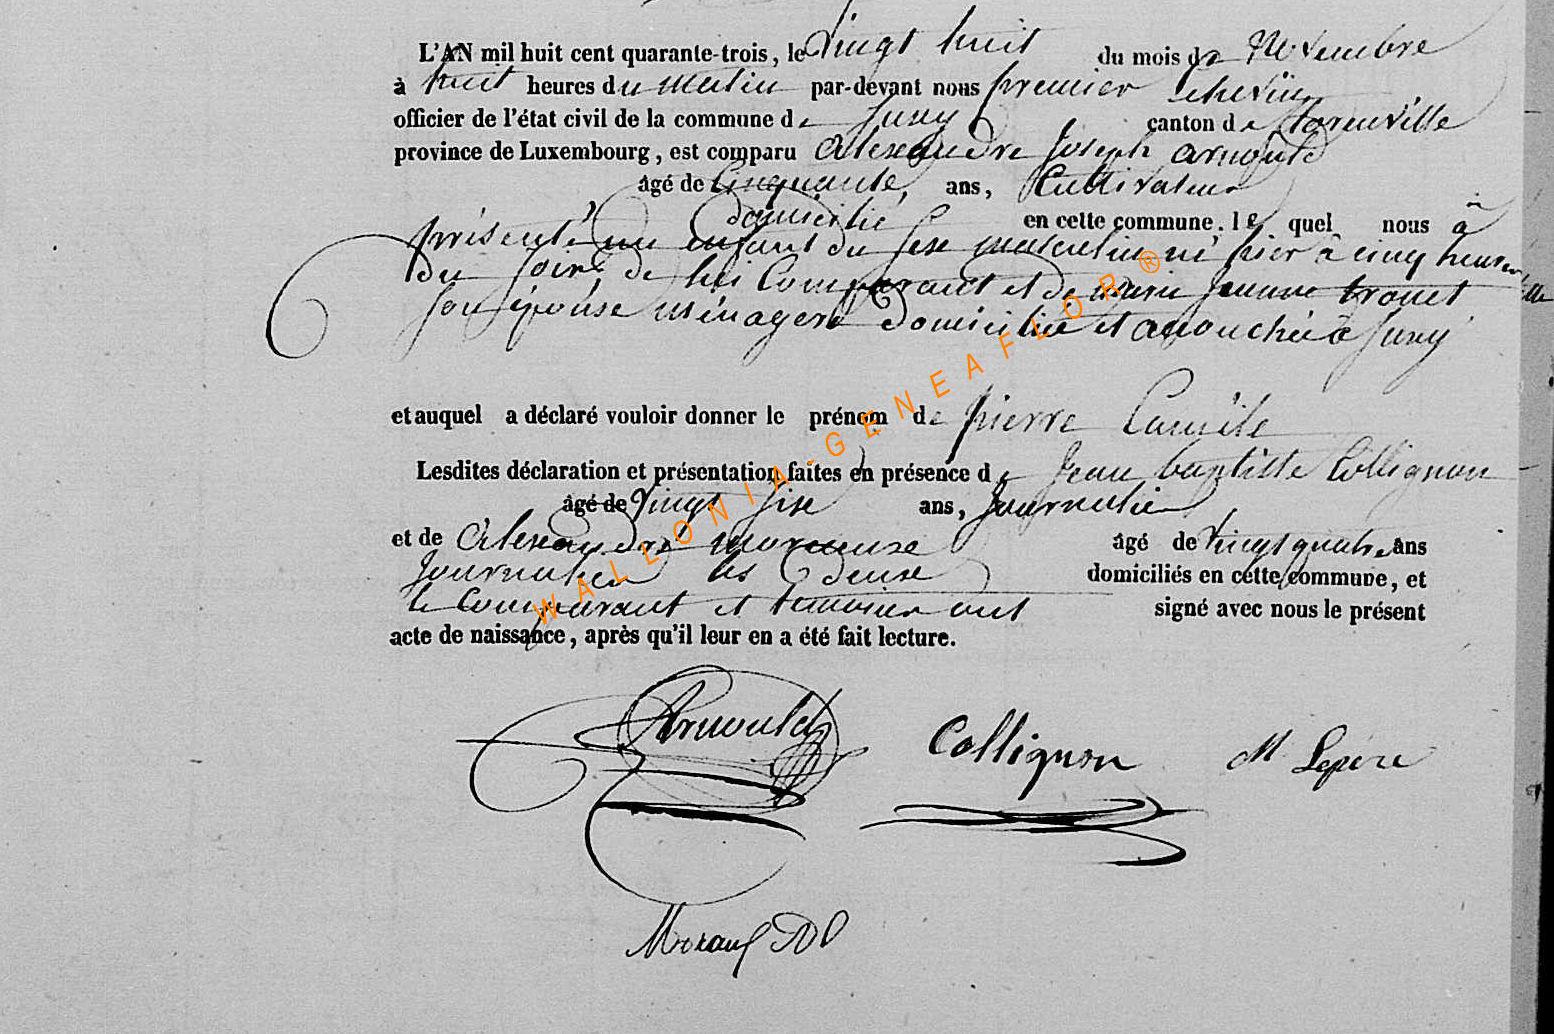 L'AN mil huit cent quarante-trois, le vingt huit du mois de Novembre
à huit heures du matin par-devant nous premier Echevin
officier de l'état civil de la commune de Juny canton de
province de Luxembourg, est comparu Alexandre Joseph Arnould
âgé de Cinquante ans, Cultivateur
domicilié en cette commune. le quel nous à
présenté un enfant du sexe masculin né hier à cinq heures
du soir, de lui Comparant et de Marie Jeanne
son épouse ménagère domiciliée et accouchée à Juny
et auquel a déclaré vouloir donner le prénom de pierre Camile
Lesdites déclaration et présentation faites en présence de Jean baptiste Collignon
âgé de vingt sixe ans, Journalier
et de Alexandre âgé de vingt quatre ans
Journalier les deux domiciliés en cette commune, et
le Comparant et temoins ont signé avec nous le présent
acte de naissance, après qu'il leur en a été fait lecture.
Arnould Collignon M Lepère
WALLONIA-GENEAFLOR®